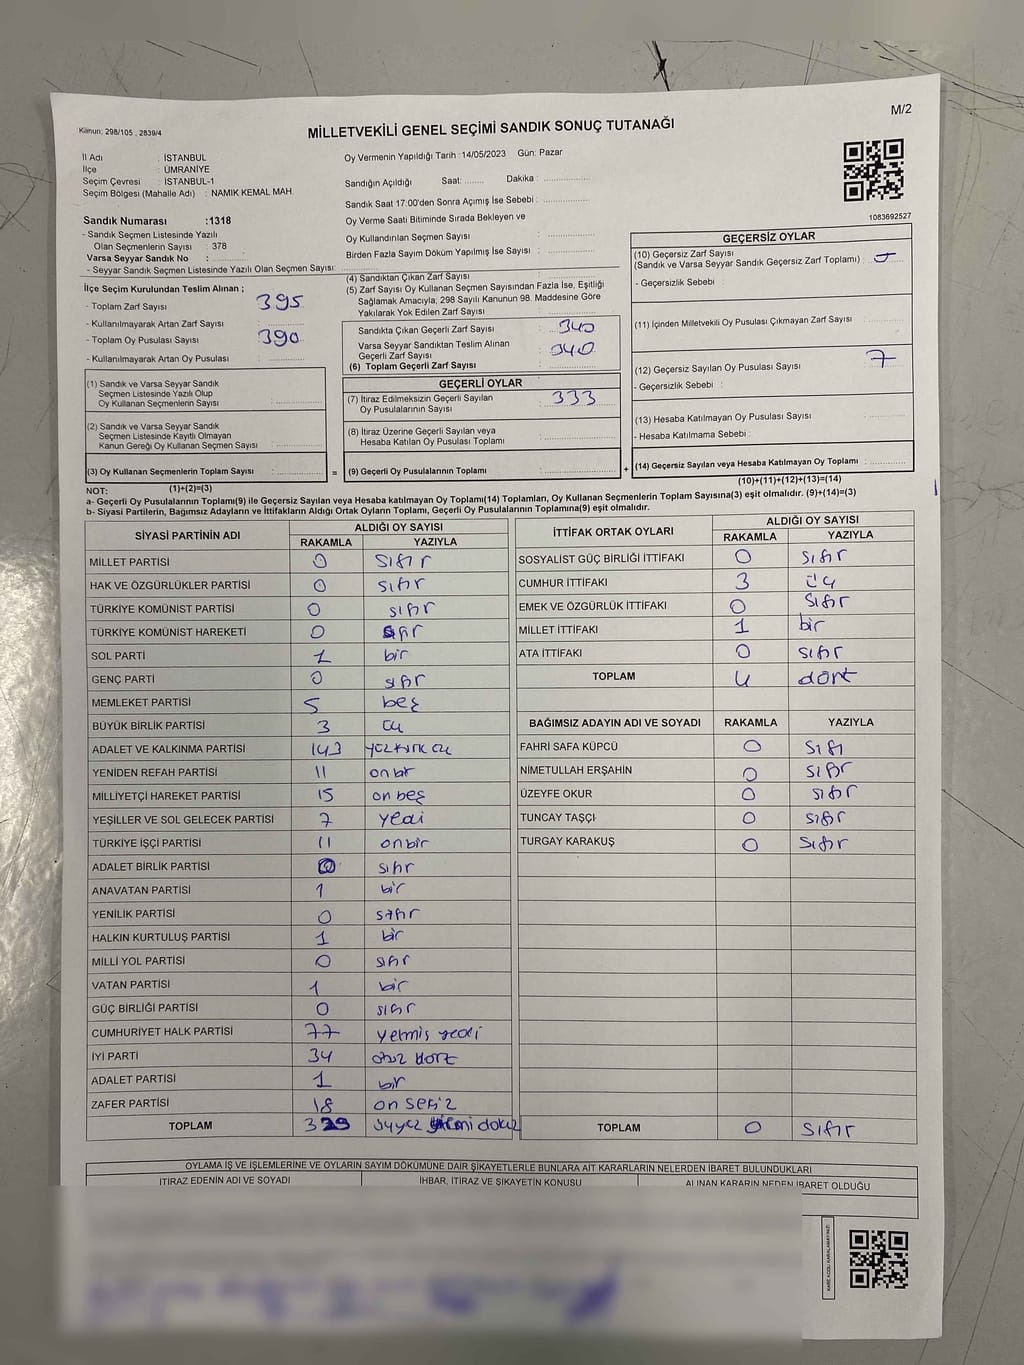 M/2
Kanun; 298/105 , 2839/4
MİLLETVEKİLİ GENEL SEÇİMİ SANDIK SONUÇ TUTANAĞI
İl Adı : İSTANBUL
İlçe : ÜMRANİYE
Seçim Çevresi : İSTANBUL-1
Seçim Bölgesi (Mahalle Adı) : NAMIK KEMAL MAH.
Sandık Numarası :1318
- Sandık Seçmen Listesinde Yazılı
Olan Seçmenlerin Sayısı : 378
Varsa Seyyar Sandık No :
- Seyyar Sandık Seçmen Listesinde Yazılı Olan Seçmen Sayısı:
Oy Vermenin Yapıldığı Tarih :14/05/2023 Gün: Pazar
Sandığın Açıldığı Saat: ........ Dakika :
Sandık Saat 17:00'den Sonra Açımış İse Sebebi :
Oy Verme Saati Bitiminde Sırada Bekleyen ve
Oy Kullandırılan Seçmen Sayısı :
Birden Fazla Sayım Döküm Yapılmış İse Sayısı :
1083692527
İlçe Seçim Kurulundan Teslim Alınan ;
- Toplam Zarf Sayısı : 395
- Kullanılmayarak Artan Zarf Sayısı :
- Toplam Oy Pusulası Sayısı : 390
- Kullanılmayarak Artan Oy Pusulası :
(1) Sandık ve Varsa Seyyar Sandık
Seçmen Listesinde Yazılı Olup
Oy Kullanan Seçmenlerin Sayısı :
(2) Sandık ve Varsa Seyyar Sandık
Seçmen Listesinde Kayıtlı Olmayan
Kanun Gereği Oy Kullanan Seçmen Sayısı :
(3) Oy Kullanan Seçmenlerin Toplam Sayısı :
(1)+(2)=(3)
(4) Sandıktan Çıkan Zarf Sayısı :
(5) Zarf Sayısı Oy Kullanan Seçmen Sayısından Fazla İse, Eşitliği
Sağlamak Amacıyla; 298 Sayılı Kanunun 98. Maddesine Göre
Yakılarak Yok Edilen Zarf Sayısı :
Sandıkta Çıkan Geçerli Zarf Sayısı : 340
Varsa Seyyar Sandıktan Teslim Alınan
Geçerli Zarf Sayısı : 340
(6) Toplam Geçerli Zarf Sayısı :
GEÇERLİ OYLAR
(7) İtiraz Edilmeksizin Geçerli Sayılan
Oy Pusulalarının Sayısı : 333
(8) İtiraz Üzerine Geçerli Sayılan veya
Hesaba Katılan Oy Pusulası Toplamı :
= (9) Geçerli Oy Pusulalarının Toplamı :
GEÇERSİZ OYLAR
(10) Geçersiz Zarf Sayısı
(Sandık ve Varsa Seyyar Sandık Geçersiz Zarf Toplamı) :
- Geçersizlik Sebebi :
(11) İçinden Milletvekili Oy Pusulası Çıkmayan Zarf Sayısı :
(12) Geçersiz Sayılan Oy Pusulası Sayısı : 7
- Geçersizlik Sebebi :
(13) Hesaba Katılmayan Oy Pusulası Sayısı :
- Hesaba Katılmama Sebebi :
+ (14) Geçersiz Sayılan veya Hesaba Katılmayan Oy Toplamı :
(10)+(11)+(12)+(13)=(14)
NOT:
a- Geçerli Oy Pusulalarının Toplamı(9) ile Geçersiz Sayılan veya Hesaba katılmayan Oy Toplamı(14) Toplamları, Oy Kullanan Seçmenlerin Toplam Sayısına(3) eşit olmalıdır. (9)+(14)=(3)
b- Siyasi Partilerin, Bağımsız Adayların ve İttifakların Aldığı Ortak Oyların Toplamı, Geçerli Oy Pusulalarının Toplamına(9) eşit olmalıdır.
SİYASİ PARTİNİN ADI ALDIĞI OY SAYISI
RAKAMLA YAZIYLA
MİLLET PARTİSİ 0 sıfır
HAK VE ÖZGÜRLÜKLER PARTİSİ 0 sıfır
TÜRKİYE KOMÜNİST PARTİSİ 0 sıfır
TÜRKİYE KOMÜNİST HAREKETİ 0 sıfır
SOL PARTİ 1 bir
GENÇ PARTİ 0 sıfır
MEMLEKET PARTİSİ 5 beş
BÜYÜK BİRLİK PARTİSİ 3 üç
ADALET VE KALKINMA PARTİSİ 143 yüzkırk üç
YENİDEN REFAH PARTİSİ 11 onbir
MİLLİYETÇİ HAREKET PARTİSİ 15 onbeş
YEŞİLLER VE SOL GELECEK PARTİSİ 7 yedi
TÜRKİYE İŞÇİ PARTİSİ 11 onbir
ADALET BİRLİK PARTİSİ 0 sıfır
ANAVATAN PARTİSİ 1 bir
YENİLİK PARTİSİ 0 sıfır
HALKIN KURTULUŞ PARTİSİ 1 bir
MİLLİ YOL PARTİSİ 0 sıfır
VATAN PARTİSİ 1 bir
GÜÇ BİRLİĞİ PARTİSİ 0 sıfır
CUMHURİYET HALK PARTİSİ 77 yetmis yedi
İYİ PARTİ 34 otuz dört
ADALET PARTİSİ 1 bir
ZAFER PARTİSİ 18 on sekiz
TOPLAM 329 üçyüz yirmi dokuz
İTTİFAK ORTAK OYLARI ALDIĞI OY SAYISI
RAKAMLA YAZIYLA
SOSYALİST GÜÇ BİRLİĞİ İTTİFAKI 0 sıfır
CUMHUR İTTİFAKI 3 üç
EMEK VE ÖZGÜRLÜK İTTİFAKI 0 sıfır
MİLLET İTTİFAKI 1 bir
ATA İTTİFAKI 0 sıfır
TOPLAM 4 dört
BAĞIMSIZ ADAYIN ADI VE SOYADI RAKAMLA YAZIYLA
FAHRİ SAFA KÜPCÜ 0 sıfı
NİMETULLAH ERŞAHİN 0 sıfır
ÜZEYFE OKUR 0 sıfır
TUNCAY TAŞÇI 0 sıfır
TURGAY KARAKUŞ 0 sıfır
TOPLAM 0 sıfır
OYLAMA İŞ VE İŞLEMLERİNE VE OYLARIN SAYIM DÖKÜMÜNE DAİR ŞİKAYETLERLE BUNLARA AİT KARARLARIN NELERDEN İBARET BULUNDUKLARI
İTİRAZ EDENİN ADI VE SOYADI İHBAR, İTİRAZ VE ŞİKAYETİN KONUSU ALINAN KARARIN NEDEN İBARET OLDUĞU
KARE KODU KARALAMAYINIZ!